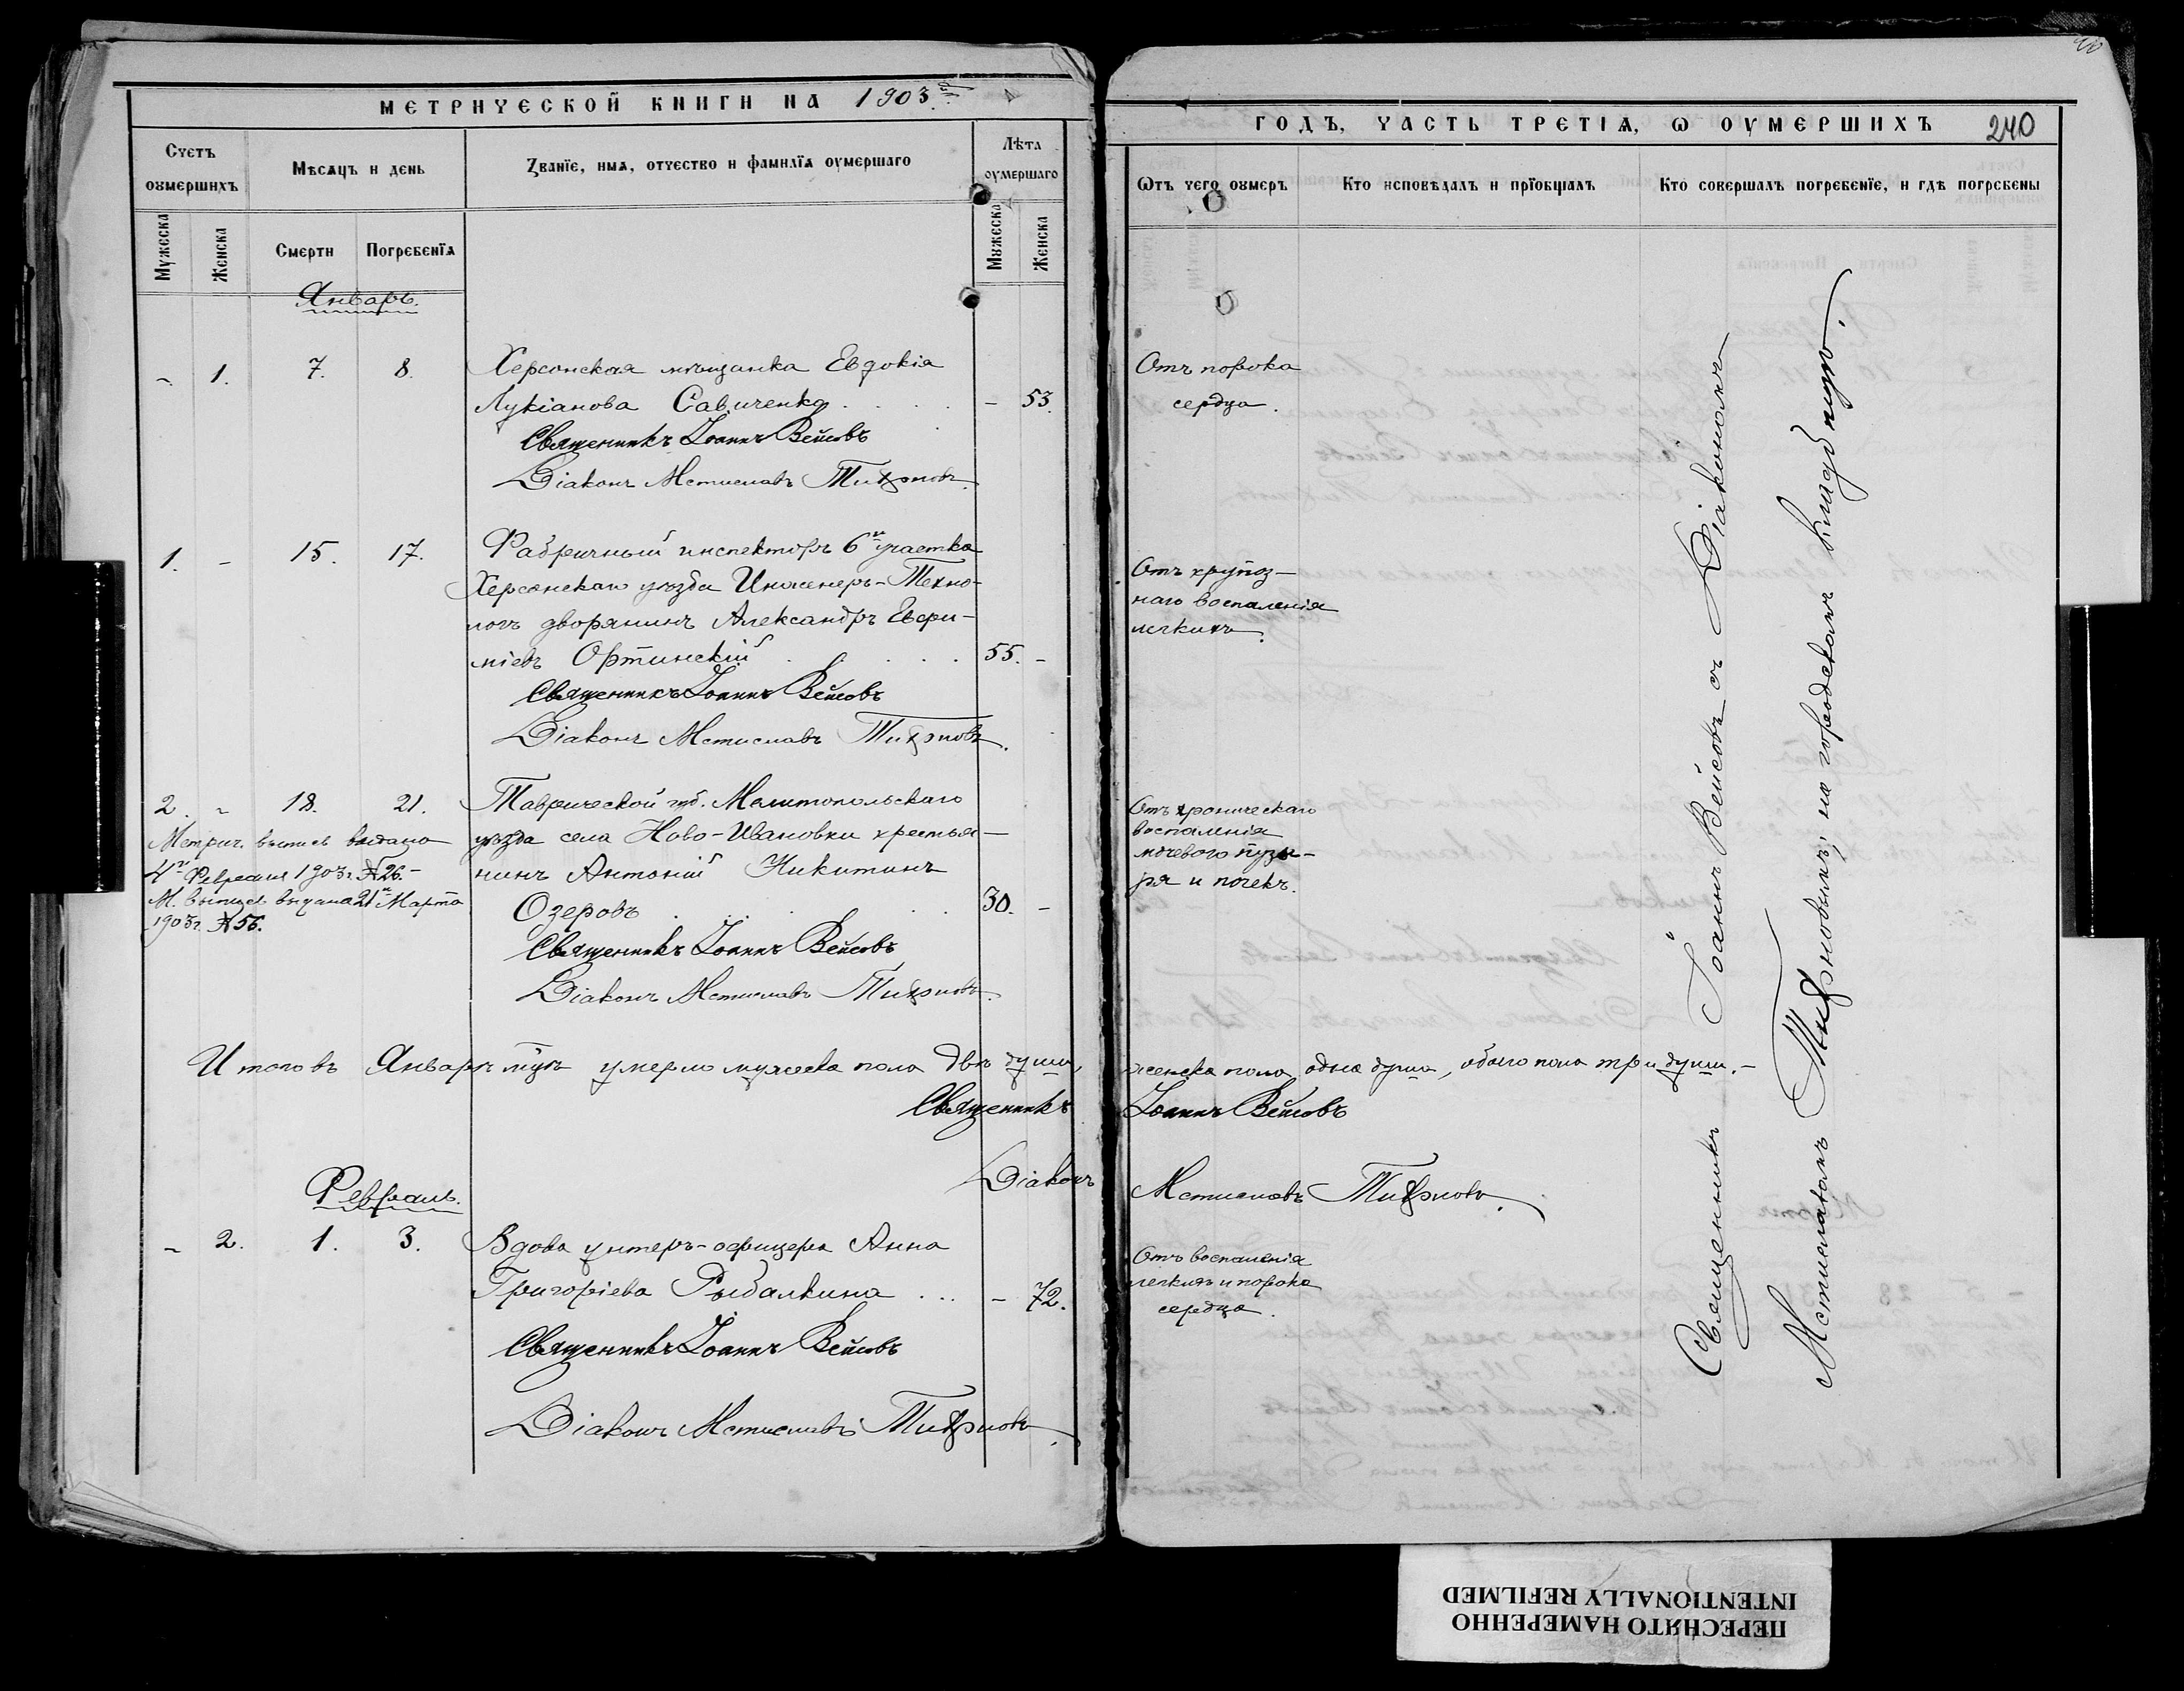 МЕТРИЧЕСКОЙ КНИГИ НА 1903й
Счетъ оумершихъ
Мѣсяцъ и день
Званїе, имя, отчество и фамилїя оумершаго
Лѣта оумершаго
Мужеска
Женска
Смерти
Погребенїя
Мужеска
Женска
Январь.
- 1. 7. 8. Херсонская мѣщанка Евдокія
Лукіанова Савиченко . . . . - 53.
Священникъ Іоаннъ Вейсовъ
Діаконъ Мстиславъ
1. - 15. 17. Фабричный инспекторъ 6го участка
Херсонскаго уѣзда Инженеръ-Техно-
логъ дворянинъ Александръ
міевъ Ортинскій . . . . 55. -
Священникъ Іоаннъ Вейсовъ
Діаконъ Мстиславъ
2. - 18. 21. Таврической губ. Мелитопольскаго
уѣзда села Ново-Ивановки крестья-
нинъ Антоній Никитинъ
Озеровъ . . . . 30. -
Метрич. выпись выдана
4го Февраля 1903 г. № 26.-
М. выпись выдана 21го Марта
1903 г. № 56.
Священникъ Іоаннъ Вейсовъ
Діаконъ Мстиславъ
Итого въ Январѣ м-цѣ умерло мужеска пола двѣ души,
Священникъ
Діаконъ
Февраль.
- 2. 1. 3. Вдова унтеръ-офицера Анна
Григоріева Рыбалкина . . . - 72.
Священникъ Іоаннъ Вейсовъ
Діаконъ Мстиславъ
40
ГОДЪ, ЧАСТЬ ТРЕТІЯ, Ѡ ОУМЕРШИХЪ 240
Ѿтъ чего оумеръ
Кто исповѣдалъ и прїобщалъ
Кто совершалъ погребенїе, и гдѣ погребены
Отъ порока
сердца.
Отъ крупоз-
наго воспаленія
легкихъ.
Отъ хроническаго
воспаленія
мочевого пузы-
ря и почекъ.
женска пола одна душа, обоего пола три души.-
Іоаннъ Вейсовъ
Мстиславъ
Отъ воспаленія
легкихъ и порока
сердца.
Священникъ Іоаннъ Вейсовъ съ Діакономъ
Мстиславомъ на городскомъ кладбищѣ.
ПЕРЕСНЯТО НАМЕРЕННО
INTENTIONALLY REFILMED